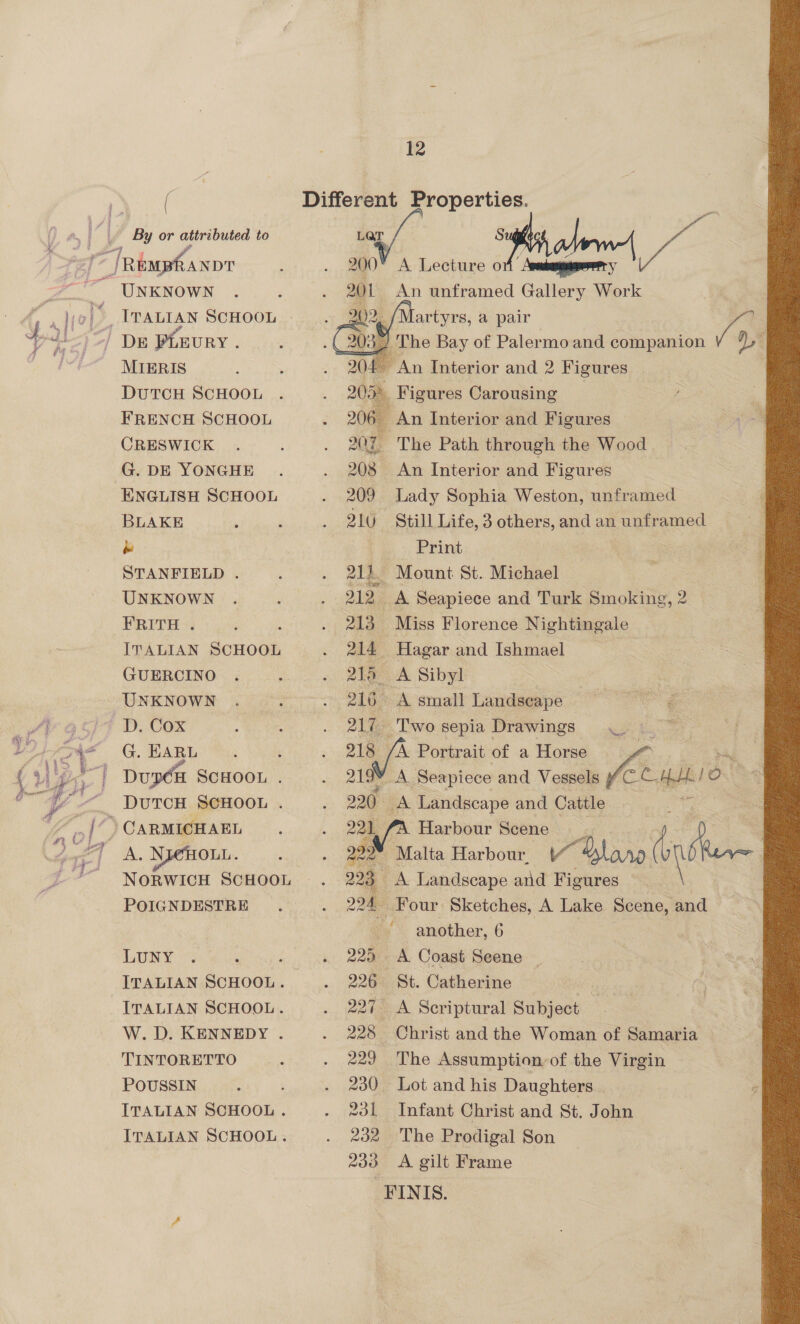 12
Different Properties.
By or attributed to LOT Subject
REMBRANDT . . 200 A Lecture on Anatomy
UNKNOWN . . . 201 An unframed Gallery Work
ITALIAN SCHOOL . 202 Martyrs, a pair
DE FLEURY . . . 203 The Bay of Palermo and companion
MIERIS . . . 204 An Interior and 2 Figures
DUTCH SCHOOL . . 205 Figures Carousing
FRENCH SCHOOL . 206 An Interior and Figures
CRESWICK . . . 207 The Path through the Wood
G. DE YONGHE . . 208 An Interior and Figures
ENGLISH SCHOOL . 209 Lady Sophia Weston, unframed
BLAKE . . . 210 Still Life, 3 others, and an unframed
Print
STANFIELD . . . 211 Mount St. Michael
UNKNOWN . . . 212 A Seapiece and Turk Smoking, 2
FRITH . . . 213 Miss Florence Nightingale
ITALIAN SCHOOL . 214 Hagar and Ishmael
GUERCINO . . . 215 A Sibyl
UNKNOWN . . . 216 A small Landscape
D. COX . . . 217 Two sepia Drawings
G. EARL . . . 218 A Portrait of a Horse
DUTCH SCHOOL . . 219 A Seapiece and Vessels
DUTCH SCHOOL . . 220 A Landscape and Cattle
CARMICHAEL . . 221 A Harbour Scene
A. NICHOLL. . . 222 Malta Harbour
NORWICH SCHOOL . 223 A Landscape and Figures
POIGNDESTRE . . 224 Four Sketches, A Lake Scene, and
another, 6
LUNY . . . 225 A Coast Scene
ITALIAN SCHOOL . . 226 St. Catherine
ITALIAN SCHOOL. . 227 A Scriptural Subject
W. D. KENNEDY . . 228 Christ and the Woman of Samaria
TINTORETTO . . 229 The Assumption of the Virgin
POUSSIN . . . 230 Lot and his Daughters
ITALIAN SCHOOL . . 231 Infant Christ and St. John
ITALIAN SCHOOL . . 232 The Prodigal Son
233 A gilt Frame
FINIS.